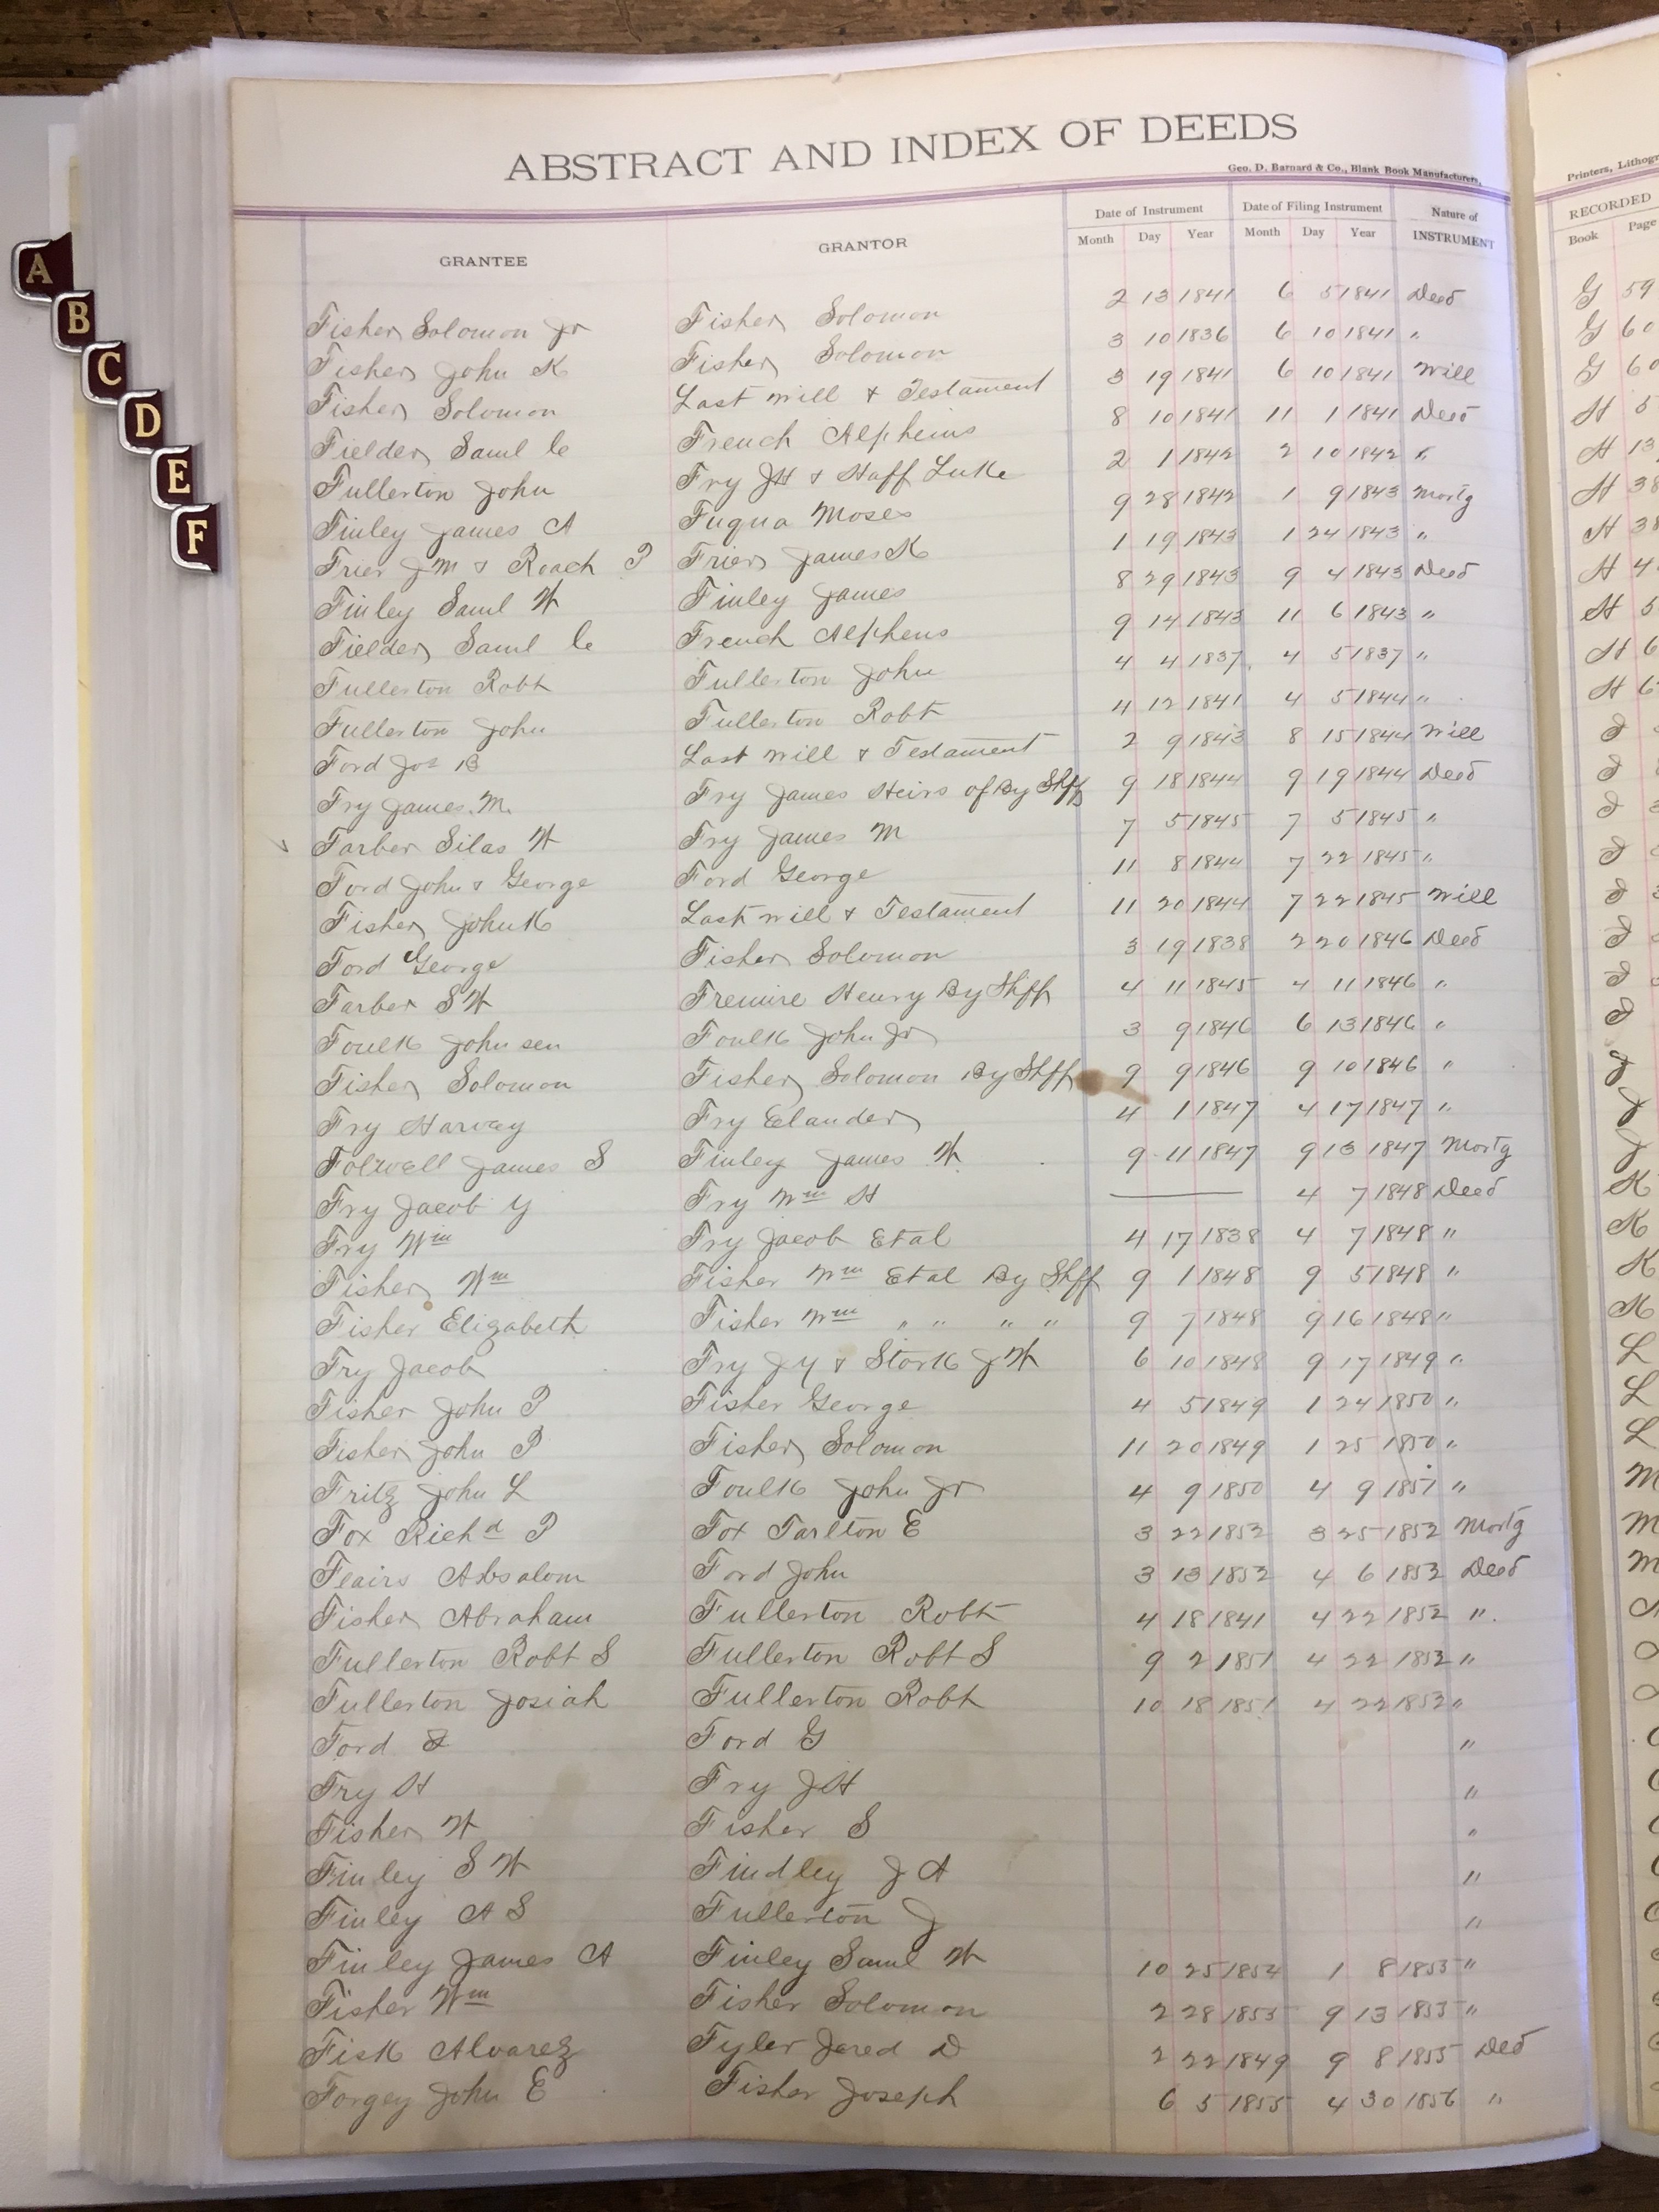 ABSTRACT AND INDEX OF DEEDS
Geo. D. Barnard & Co., Blank Book Manufacturers,
Printers, Lithogr
GRANTEE GRANTOR Date of Instrument Date of Filing Instrument Nature of INSTRUMENT RECORDED
Month Day Year Month Day Year Book Page
A
B
C
D
E
F
Fisher Solomon Jr Fisher Solomon 2 13 1841 6 5 1841 Deed G 59
Fisher John K Fisher Solomon 3 10 1836 6 10 1841 " G 60
Fisher Solomon Last Will & Testament 3 19 1841 6 10 1841 Will G 60
Fielder Saml C French Alpheius 8 10 1841 11 1 1841 Deed H 5
Fullerton John Fry JH & Haff Luke 2 1 1842 2 10 1842 " H 13
Finley James A Fuqua Moses 9 28 1842 1 9 1843 Mortg H 38
Frier JM & Roach P Frier James K 1 19 1843 1 24 1843 " H 38
Finley Saml W Finley James 8 29 1843 9 4 1843 Deed H 4
Fielder Saml C French Alpheus 9 14 1843 11 6 1843 " H 5
Fullerton Robt Fullerton John 4 4 1837 4 5 1837 " H 6
Fullerton John Fullerton Robt 4 12 1841 4 5 1844 " H 6
Ford Jos B Last Will & Testament 2 9 1843 8 15 1844 Will I
Fry James M. Fry James Heirs of By Shff 9 18 1844 9 19 1844 Deed I
Farber Silas W Fry James M 7 5 1845 7 5 1845 " I
Ford John & George Ford George 11 8 1844 7 22 1845 " I
Fisher John K Last Will & Testament 11 20 1844 7 22 1845 Will I
Ford George Fisher Solomon 3 19 1838 2 20 1846 Deed I
Farber S W Fremire Henry By Shff 4 11 1845 4 11 1846 " I
Foulk John sen Foulk John Jr 3 9 1846 6 13 1846 " I
Fisher Solomon Fisher Solomon By Shff 9 9 1846 9 10 1846 "
Fry Harvey Fry Elander 4 1 1847 4 17 1847 " J
Folwell James S Finley James W 9 11 1847 9 13 1847 Mortg J
Fry Jacob Y Fry Wm H 4 7 1848 Deed K
Fry Wm Fry Jacob Etal 4 17 1838 4 7 1848 " K
Fisher Wm Fisher Wm Etal By Shff 9 1 1848 9 5 1848 " K
Fisher Elizabeth Fisher Wm " " " " 9 7 1848 9 16 1848 " K
Fry Jacob Fry J Y & Stork J W 6 10 1848 9 17 1849 " L
Fisher John P Fisher George 4 5 1849 1 24 1850 " L
Fisher John P Fisher Solomon 11 20 1849 1 25 1850 " L
Fritz John L Foulk John Jr 4 9 1850 4 9 1851 " M
Fox Richd P Fox Tarlton E 3 22 1852 3 25 1852 Mortg M
Feairs Absalom Ford John 3 13 1852 4 6 1852 Deed M
Fisher Abraham Fullerton Robt 4 18 1841 4 22 1852 "
Fullerton Robt S Fullerton Robt S 9 2 1851 4 22 1852 "
Fullerton Josiah Fullerton Robt 10 18 1851 4 22 1852 "
Ford Ford G "
Fry H Fry JH "
Fisher W Fisher S "
Finley S W Findley J A "
Finley A S Fullerton J "
Finley James A Finley Saml W 10 25 1854 1 8 1853 "
Fisher Wm Fisher Solomon 2 28 1853 9 13 1853 "
Fisk Alvarez Fyler Jared D 2 22 1849 9 8 1855 Deed
Forgey John E Fisher Joseph 6 5 1855 4 30 1856 "